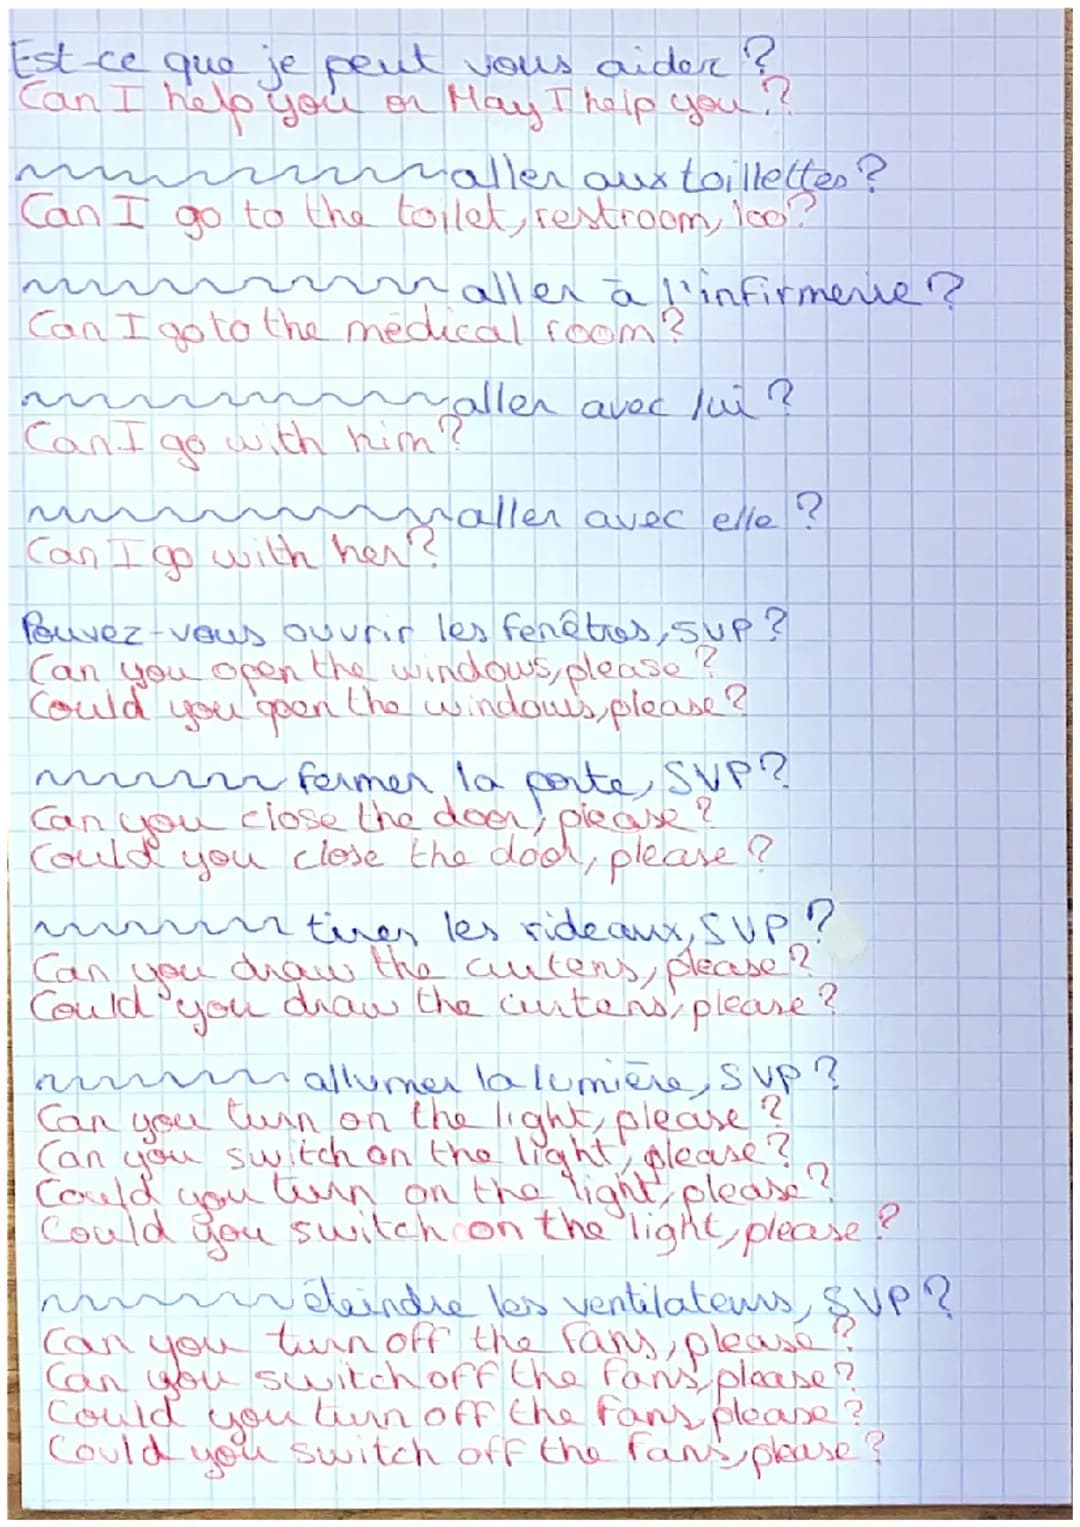 Est-ce que je peut vous aider ?
Can I help you or May I help you ?
aller aux toillettes ?
Can I go to the toilet, restroom, loo?
aller à l'infirmerie ?
Can I go to the médical room ?
aller avec lui ?
Can I go with him ?
aller avec elle ?
Can I go with her ?
Pouvez-vous ouvrir les fenêtres, SVP ?
Can you open the windows, please ?
Could you open the windows, please ?
fermer la porte, SVP ?
Can you close the door, please ?
Could you close the door, please ?
tirer les rideaux, SVP ?
Can you draw the curtens, please ?
Could you draw the curtens, please ?
allumer la lumière, SVP ?
Can you turn on the light, please ?
Can you switch on the light, please ?
Could you turn on the light, please ?
Could you switch on the light, please ?
éteindre les ventilateurs, SVP ?
Can you turn off the fans, please ?
Can you switch off the fans, please ?
Could you turn off the fans, please ?
Could you switch off the fans, please ?